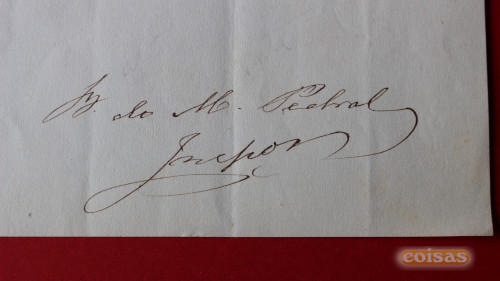 B. do M. Pedral
Inspor
coisas